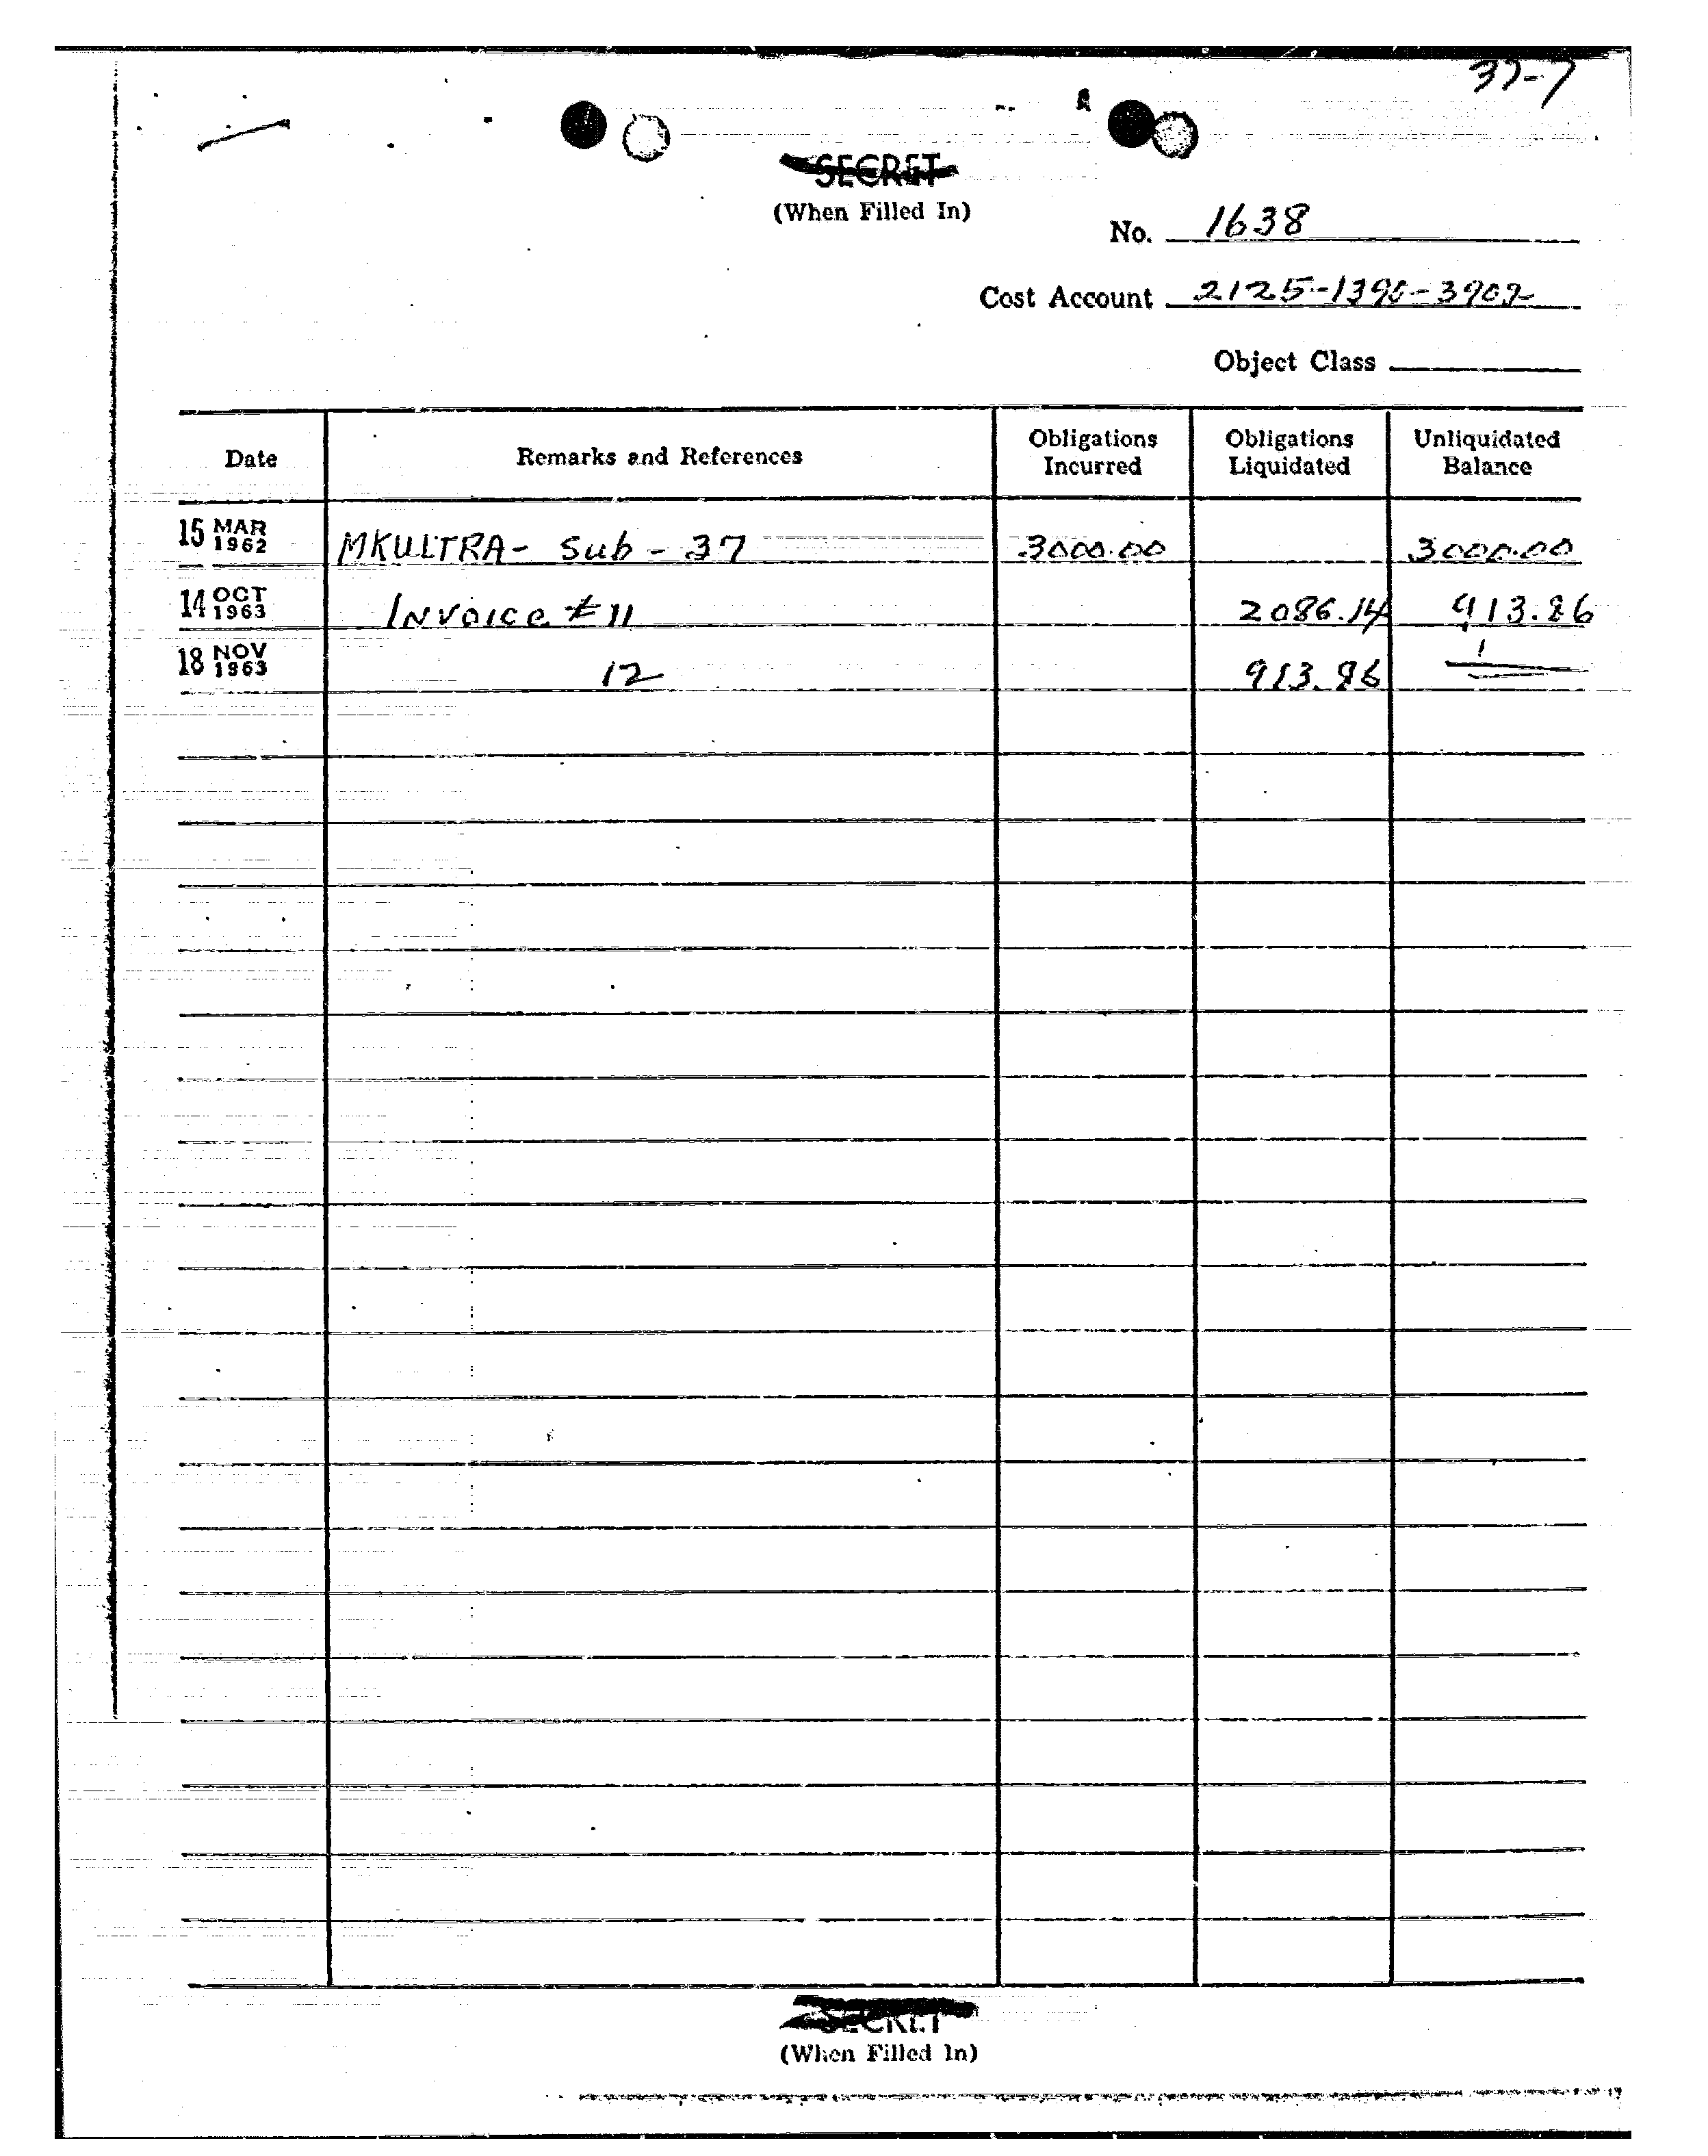 37-7
SECRET
(When Filled In)
No. 1638
Cost Account 2125-1390-3902
Object Class
Date Remarks and References Obligations Incurred Obligations Liquidated Unliquidated Balance
15 MAR 1962 MKULTRA - Sub - 37 3000.00 3000.00
14 OCT 1963 Invoice #11 2086.14 913.86
18 NOV 1963 12 913.86
SECRET
(When Filled In)